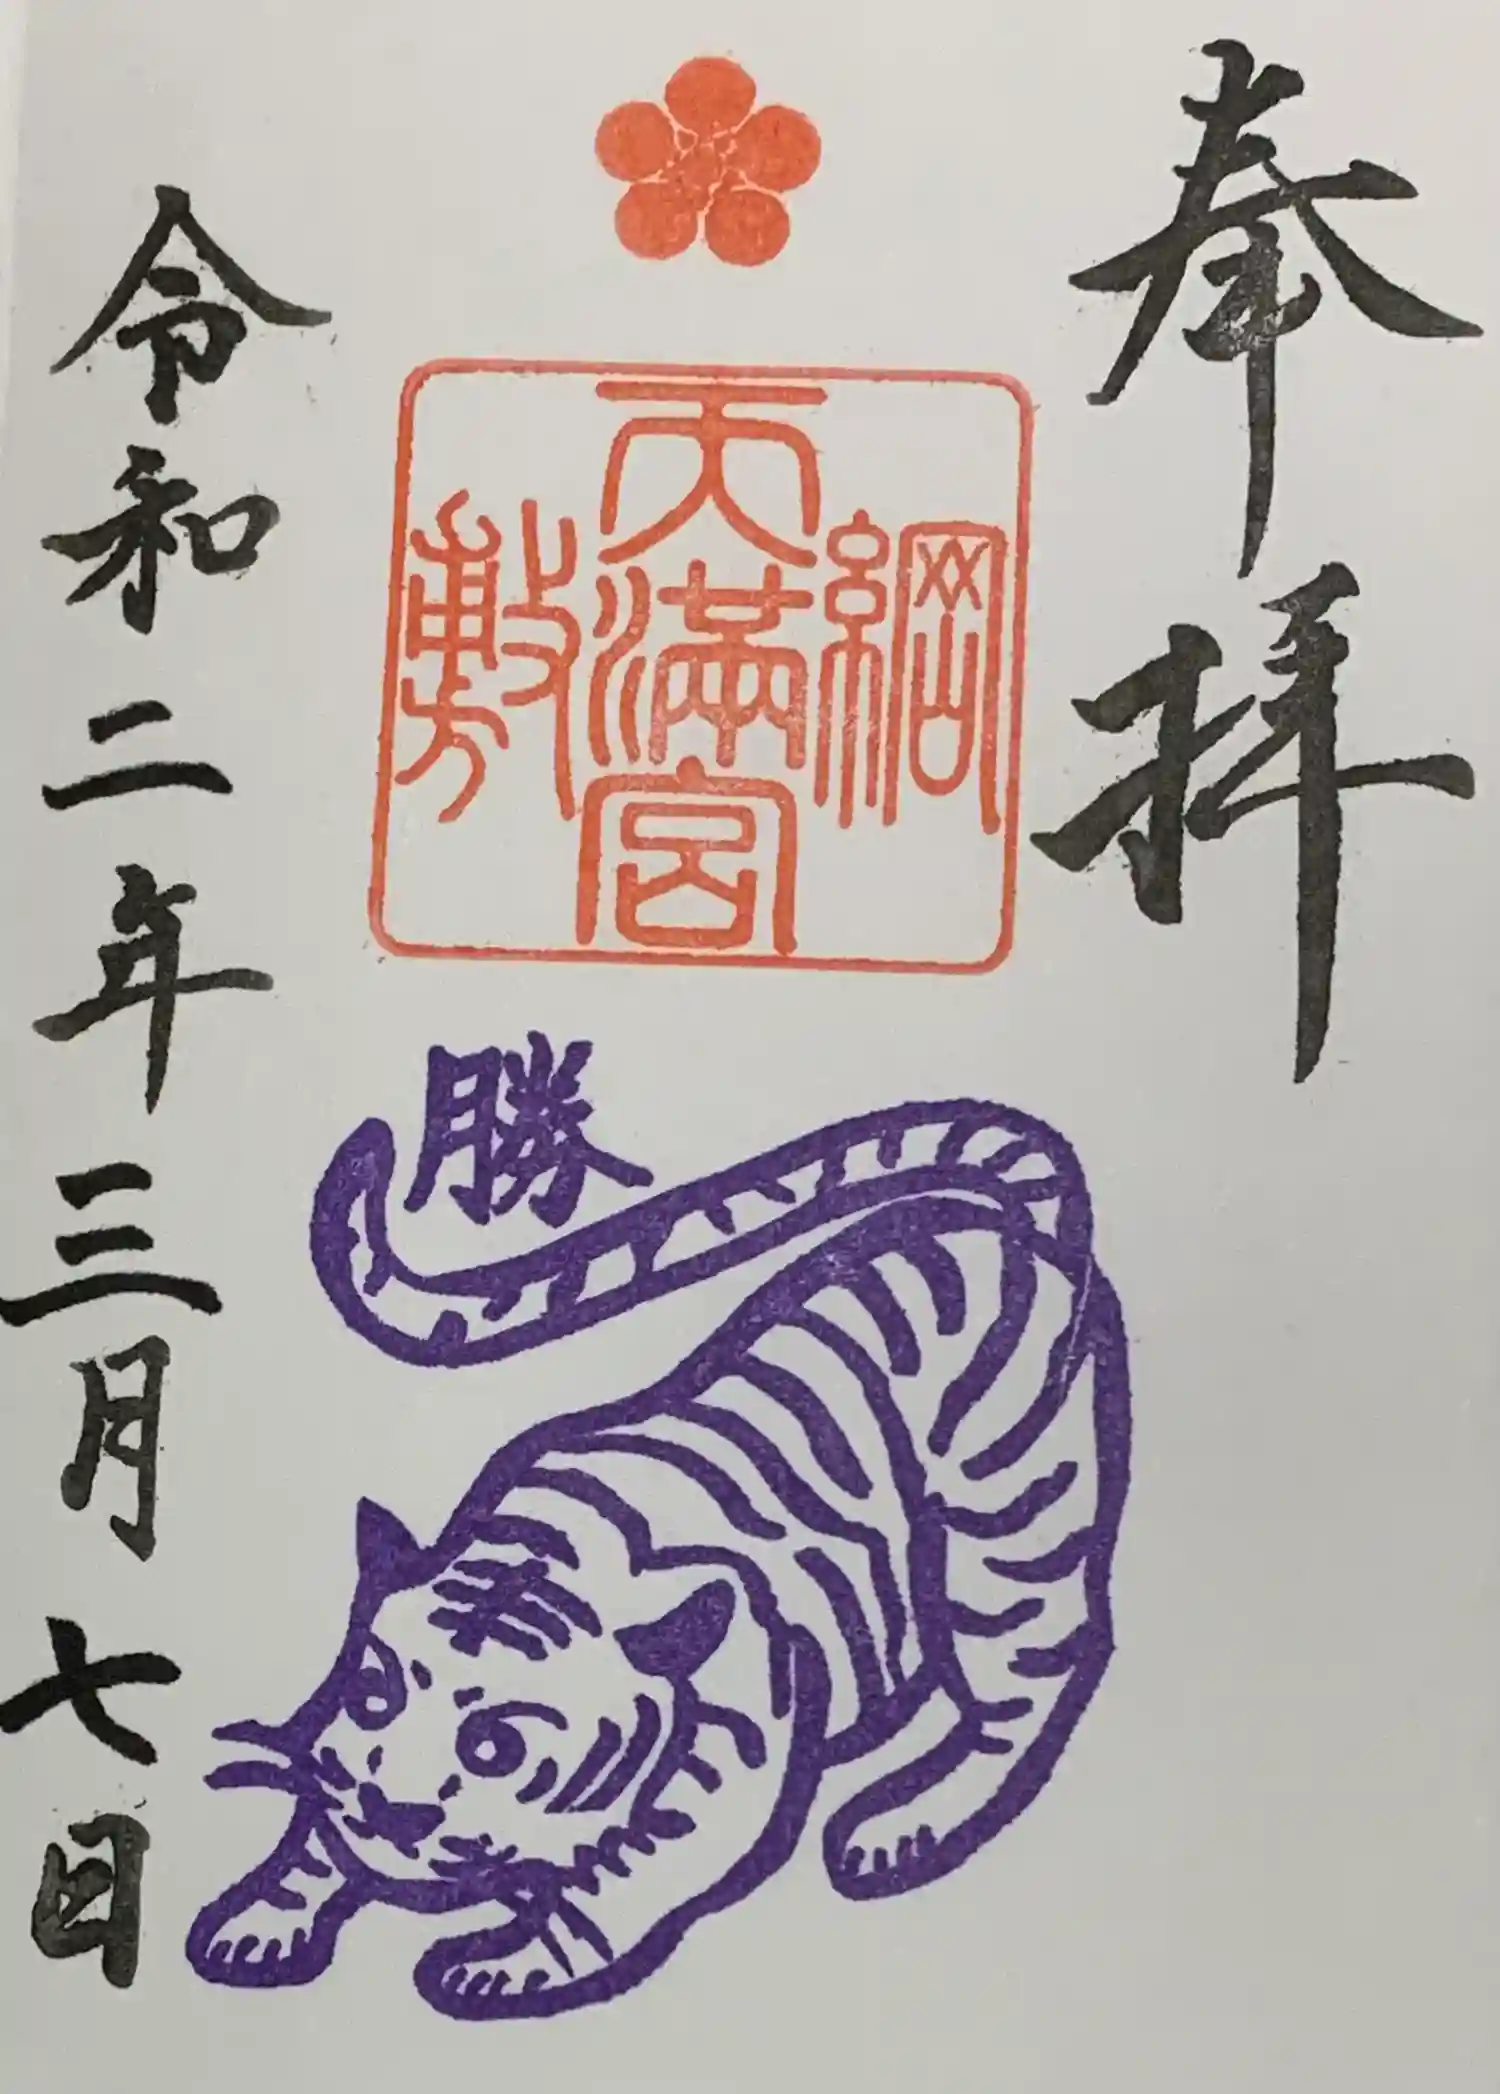 奉拝
綱
天満宮
敷
勝
令和二年三月七日